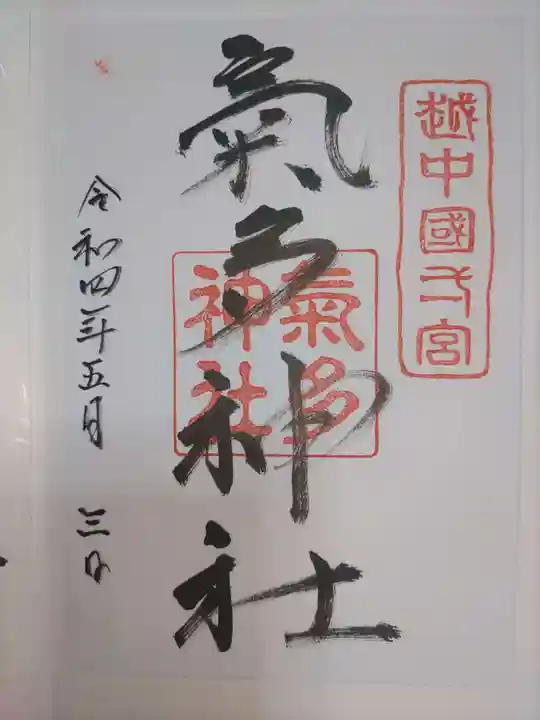 越中國一宮
氣多神社
氣多
神社
令和四年五月 三日